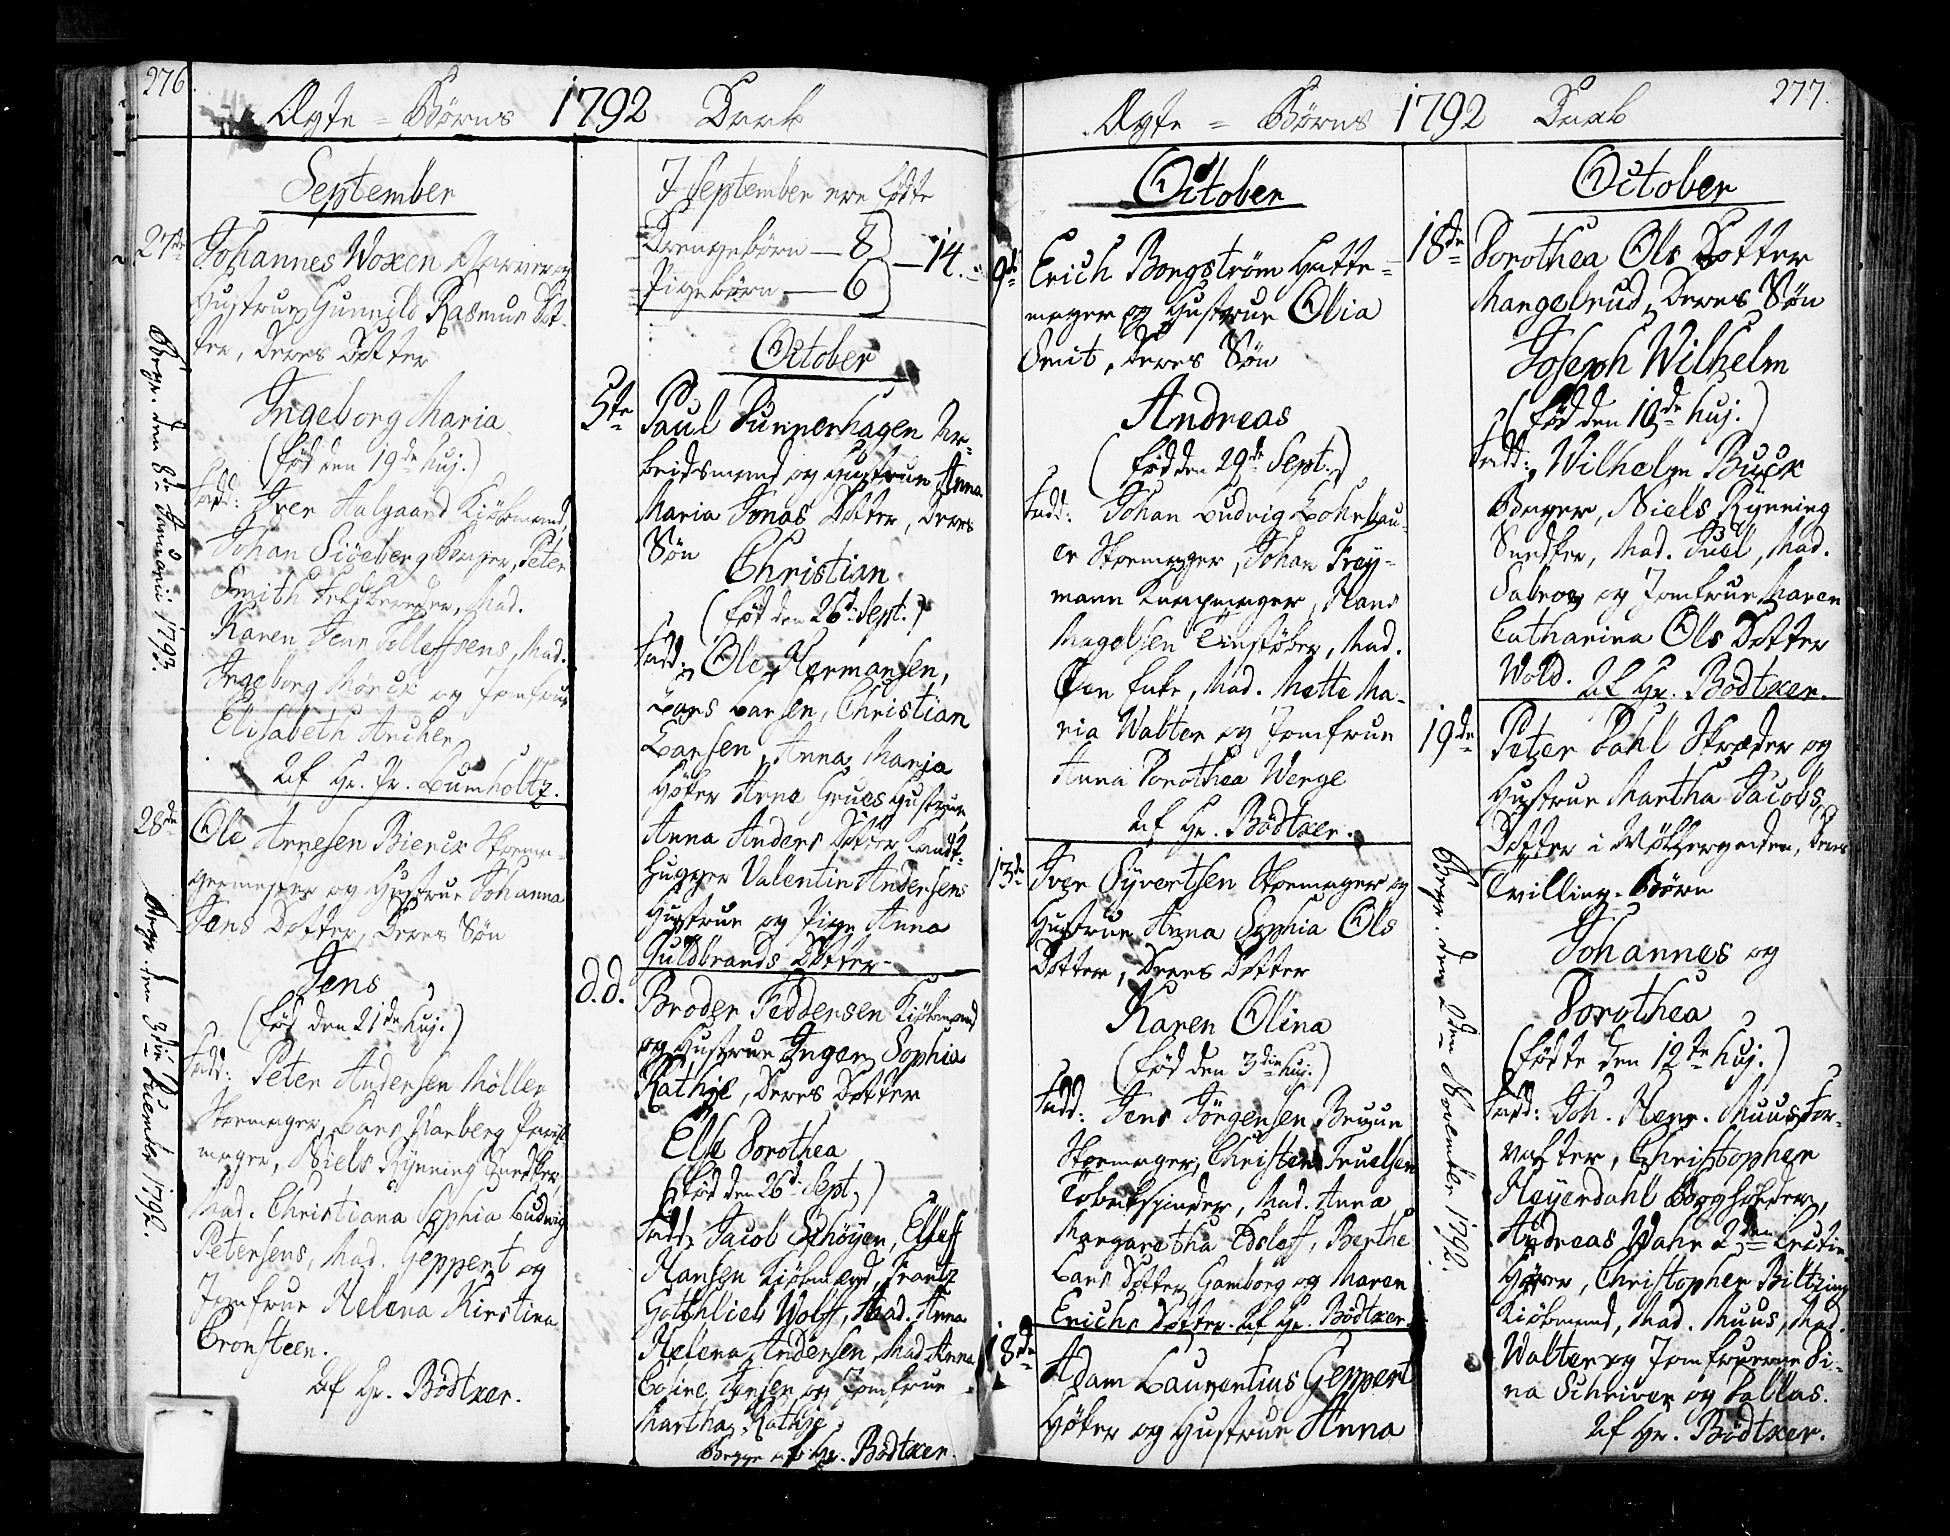 276
Ægte = Børns 1792 Daab
September
27de
Johannes Woxen og
Hustrue Gunnild Rasmus Dot-
ter, deres Dotter
Ingeborg Maria
(fød den 19de huj.)
Fadd: Iver Aalgaard Kiøbmand,
Johan Siöeberg, Peter
Smith, Mad.
Karen Jens Tollefsens, Mad.
Ingeborg Mörck og Jomfrue
Elisabeth Ancher
Af Hr. Pr. Lumholtz.
Begr. den 8de Januarii 1793.
28de
Ole Arnesen Bierck Skoma-
germester og Hustrue Johanna
Jens Dotter, Deres Søn
Jens
(fød den 21de huj.)
Fadd: Peter Andersen Möller
Skoemager, Lars Karberg
mager, Niels Rÿnning Snedker,
Mad. Christiana Sophia Ludwig
Petersens, Mad. Geppert og
Jomfrue Helena Kirstina
Cronsteen.
Af Hr. Bödtker.
Begr. den 3die 1792.
I September ere fødte
Drengebørn — 8
Pigebørn — 6 — 14.
October
5te
Paul Dünnerhagen Ar-
beidsmand og Hustrue Anna
Maria Jonas Dotter, Deres
Søn
Christian
(fød den 26de Sept.)
Fadd: Ole Hermansen,
Lars Larsen, Christian
Larsen, Anna Maria
Höker Arne Grues Hustrue,
Anna Anders Dotter
hugger Valentin Andersens
Hustrue og Pige Anna
Guldbrands Dotter
d.d.
Broder Feddersen Kiøbmand
og Hustrue Inger Sophia
Rathje, Deres Dotter
Else Dorothea
(fød den 26de Sept.)
Fadd: Jacob Schöyen, Ellef
Hansen Kiøbmænd, Frantz
Gothlieb Wolff, Mad. Anna
Helena Andersen, Mad. Anna
Jensen og Jomfrue
Martha Rathje.
Begge af Hr. Bödtker.
277.
Ægte = Børns 1792 Daab
October
9de
Erich Borgström Hatte-
mager og Hustrue Olia
Smit, Deres Søn
Andreas
(fød den 29de Sept.)
Fadd: Johan Ludvig
er Skoemager, Johan Frey-
mann Knapmager, Hans
Magelsen Tinstøber, Mad.
Mad. Mette Ma-
ria Walter og Jomfrue
Anna Dorothea Werge
Af Hr. Bödtker.
13de
Iver Syvertsen Skoemager og
Hustrue Anna Sophia Ols
Dotter, Deres Dotter
Karen Olina
(fød den 3die huj.)
Fadd: Jens Jörgensen Bruun
Skoemager, Christen Truelsen
Tobakspinder, Mad. Anna
Margaretha Edsleff, Berthe
Lars Dotter Gamborg og Maren
Erichs Dotter. Af Hr. Bödtker.
18de
Adam Laurentius Geppert
Höker og Hustrue Anna
October
18de
Dorothea Ols Dotter
Mangelrud, Deres Søn
Joseph Wilhelm
(fød den 10de huj.)
Fadd: Wilhelm Buck
Borger, Niels Rÿnning
Snedker, Mad. Juel, Mad.
Sabroe og Jomfrue Maren
Catharina Ols Dotter
Wold. Af Hr. Bödtker.
19de
Peter Dahl Skræder og
Hustrue Martha Jacobs
Dotter i Møllergaden, Deres
Tvilling-Børn
Johannes og
Dorothea
(fødte den 12te huj.)
Fadd: Joh. Henr. Muus For-
valter, Christopher
Heyerdahl Bogholder,
Andreas Wahr 2den Lectie
Hører, Christopher Biltzing
Kiøbmænd, Mad. Muus, Mad.
Walter og Jomfruerne Si-
na Schriver og Dallas.
Af Hr. Bödtker.
Begr. den 2den November 1792.